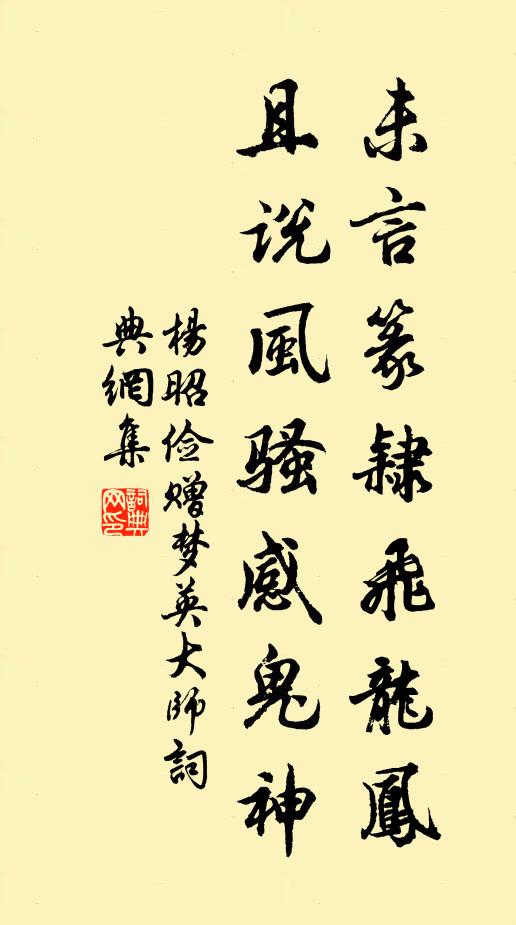 未言篆隸飛龍鳳
且说風騷感鬼神
楊昭俭赠梦英大師詞
典網集
詞典
网印